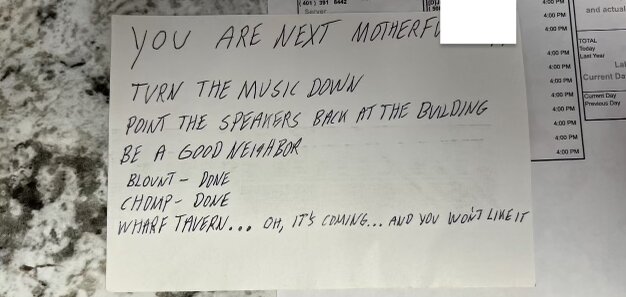 (401) 391 6442
Server
YOU ARE NEXT MOTHERFU
TURN THE MUSIC DOWN
POINT THE SPEAKERS BACK AT THE BUILDING
BE A GOOD NEIGHBOR
BLOUNT - DONE
CHOMP - DONE
WHARF TAVERN... OH, IT'S COMING... AND YOU WON'T LIKE IT
4:00 PM
4:00 PM
4:00 PM
4:00 PM
4:00 PM
4:00 PM
4:00 PM
4:00 PM
4:00 PM
4:00 PM
4:00 PM
and actual
TOTAL
Today
Last Year
Current Da
Current Day
Previous Day